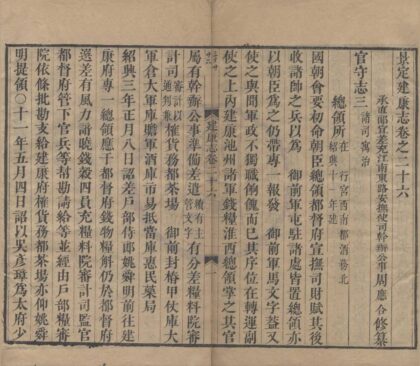 景定建康志卷之二十六
承直郎宣差充江南東路安撫使司幹辦公事周應合修纂
官守志三 諸司寓治
總領所 在行宮西南都酒務北紹興十一年建
國朝會要初命朝臣總領都督府宣撫司財賦其後
收諸帥之兵以爲 御前軍屯駐諸處皆置總領亦
以朝臣爲之仍帶專一報發 御前軍馬文字蓋又
使之與聞軍政不獨職餉饋而已其序位在轉運副
使之上內建康池州諸軍錢糧淮西總領掌之其官
建康志卷二十六
屬有幹辦公事準備差遣 續有主管文字 有分差糧料院審
計司 審計以通判兼 榷貨務都茶場 御前封樁甲仗庫大
軍倉大軍庫贍軍酒庫市易抵當庫惠民藥局
紹興三年正月八日詔差戶部侍郎姚舜明前往建
康府專一總領應干都督府錢物糧斛仍於都督府
選差有風力諳曉錢穀四員充糧料院審計司監官
都督府管下官兵等幫勘請給等並經由戶部糧審
院依條批勘支給建康府榷貨務都茶場亦仰姚舜
明提領○十一年五月四日詔以吳彥璋爲太府少